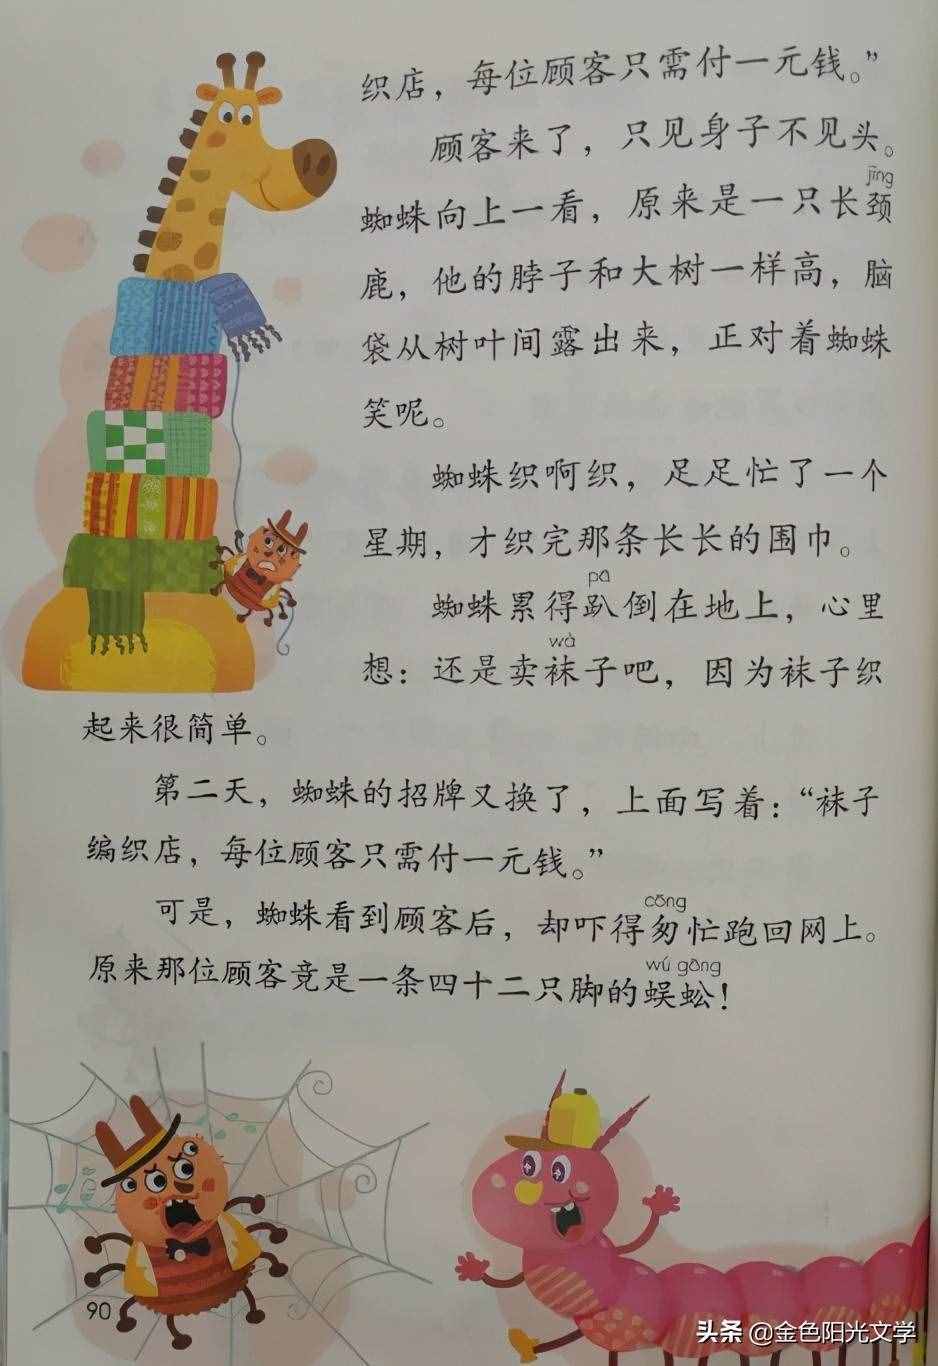 织店，每位顾客只需付一元钱。”
顾客来了，只见身子不见头。
jǐng
蜘蛛向上一看，原来是一只长颈
鹿，他的脖子和大树一样高，脑
袋从树叶间露出来，正对着蜘蛛
笑呢。
蜘蛛织啊织，足足忙了一个
星期，才织完那条长长的围巾。
pā
蜘蛛累得趴倒在地上，心里
wà
想：还是卖袜子吧，因为袜子织
起来很简单。
第二天，蜘蛛的招牌又换了，上面写着：“袜子
编织店，每位顾客只需付一元钱。”
cōng
可是，蜘蛛看到顾客后，却吓得匆忙跑回网上。
wú gōng
原来那位顾客竟是一条四十二只脚的蜈蚣！
90
头条 @金色阳光文学